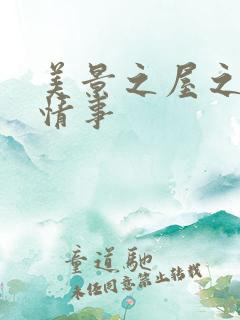 美景之屋之
情事
童道驰
未经同意禁止转载